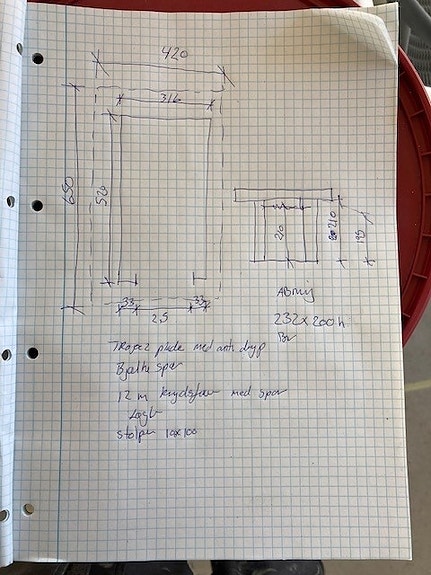 420
316
650
520
33
33
2,5
210
210
195
Åbning
232x200 h.
Br
Trapez plade med anti dryp
Bjælke spær
12 m krydsfiner med spær
stolper 10x100